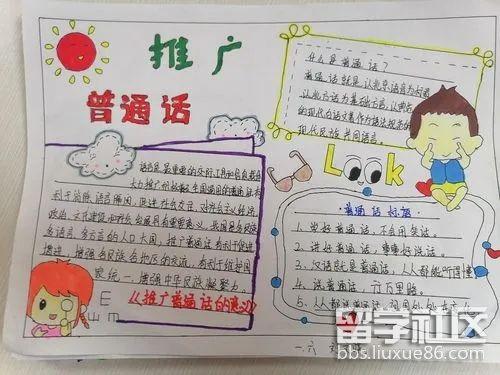 推广
普通话
什么是普通话?
普通话就是以北京语音为标准
以北方话为基础方言,以典范
的现代白话文著作为语法规范的
现代民族共同语言。
Look
语言是最重要的交际工具和信息载体
大力推广
全国通用的普通话有
利于消除语言隔阂,促进社会交往,对社会主义经济
政治、文化建设和社会发展具有重要意义。我国是多民族
多语言、多方言的人口大国,推广普通话有利于促进
增进各民族各地区的交流,有利于维护国
家统一,增强中华民族凝聚力。
《推广普通话的意义》
E
E
m
普通话标语
1、常好普通话,
2、讲好普通话,
好说话。
3、汉语就是普通话,人人都能听得懂
4、说普通话,行万里路。
5、人人都说普通话,
一.六
留学社区
bbs.liuxue86.com